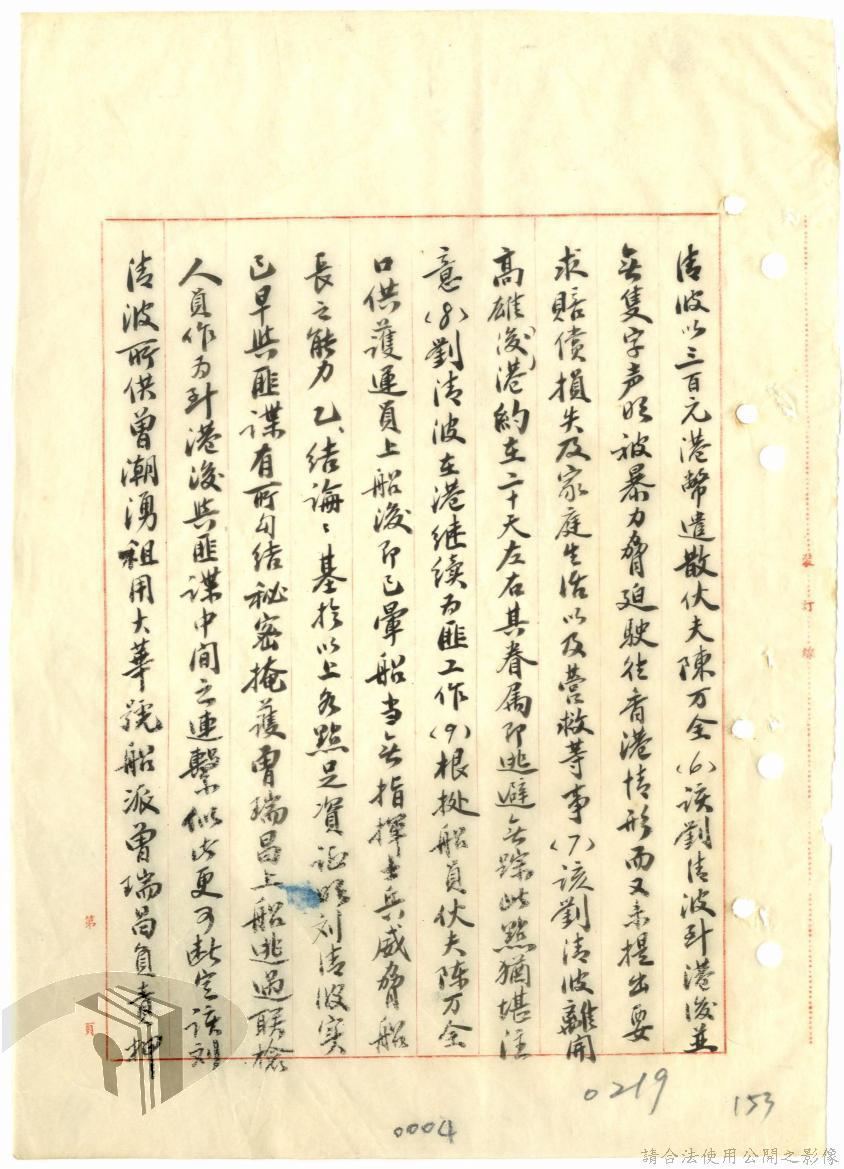 清波以三百元港幣遣散伙夫陳万全(6)该劉清波到港後並
無隻字声明被暴力脅廹駛往香港情形而又未提出要
求賠償損失及家庭生活以及营救等事(7)该劉清波離開
高雄後港約在二十天左右其眷属即逃避無踪此點猶堪注
意(8)劉清波在港继续为匪工作(9)根拠船員伙夫陈万全
口供護運員上船後即已暈船当無指揮士兵威脅船
長之能力乙、結論：基於以上各點足資证明刘清波实
已早與匪諜有所勾结秘密掩護曾瑞昌上船逃過联檢
人員作为到港後與匪諜中间之連繫似此更可断定该刘
清波所供曾潮湧租用大華號船派曾瑞昌負責押
裝訂線
第 頁
0219
153
0004
請合法使用公開之影像